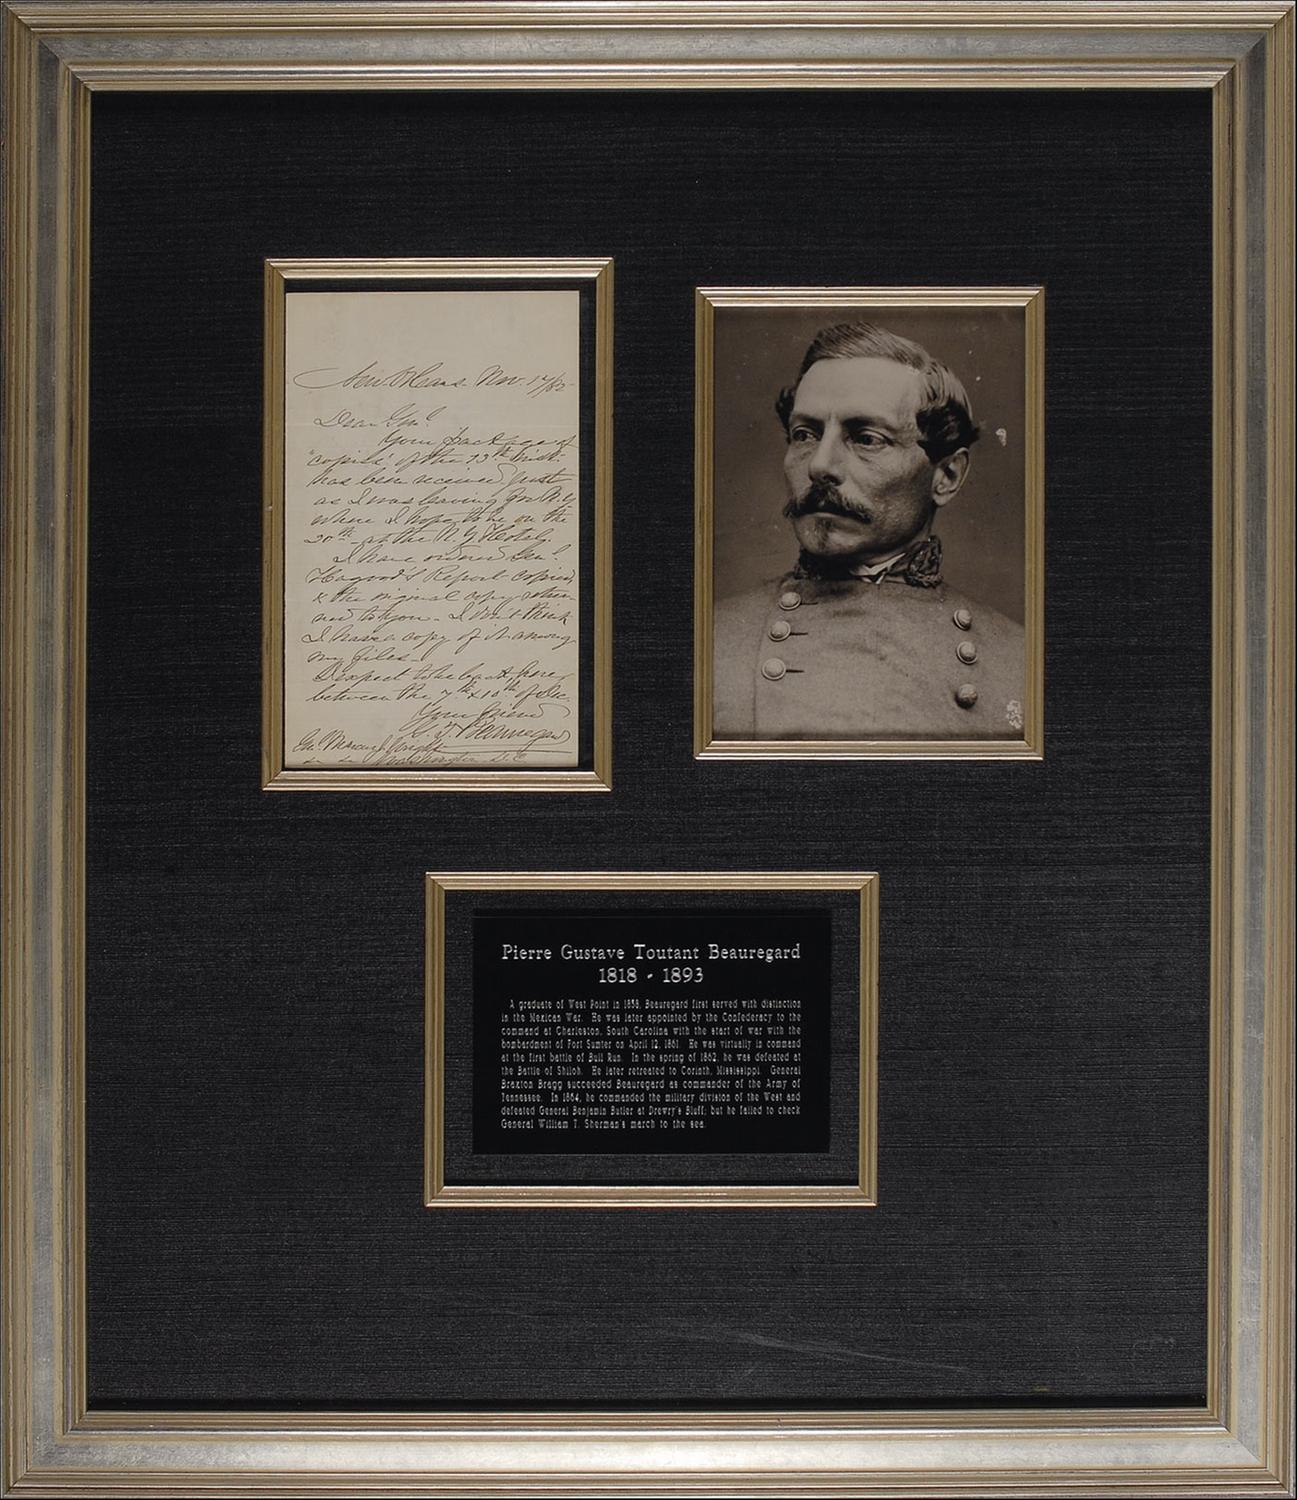 New Orleans Nov. 14/82
Dear Gen'l
Your package of
"copies" of the 13th inst.
has been received just
as I was leaving for N.Y
where I hope to be on the
20th at the N.Y Hotel.
I have ordered Gen'l
Hagood's Report copied
& the original copy return
ned to you - I don't think
I have a copy of it among
my files -
I expect to be back here
between the 7th & 10th of Dec.
Your friend
G. T. Beauregard
Gen. Marcus J. Wright
Washington D.C
Pierre Gustave Toutant Beauregard
1818 - 1893
A graduate of West Point in 1838, Beauregard first served with distinction
in the Mexican War. He was later appointed by the Confederacy to the
command at Charleston, South Carolina with the start of war with the
bombardment of Fort Sumter on April 12, 1861. He was virtually in command
at the first battle of Bull Run. In the spring of 1862, he was defeated at
the Battle of Shiloh. He later retreated to Corinth, Mississippi. General
Braxton Bragg succeeded Beauregard as commander of the Army of
Tennessee. In 1864, he commanded the military division of the West and
defeated General Benjamin Butler at Drewry's Bluff; but he failed to check
General William T. Sherman's march to the sea.